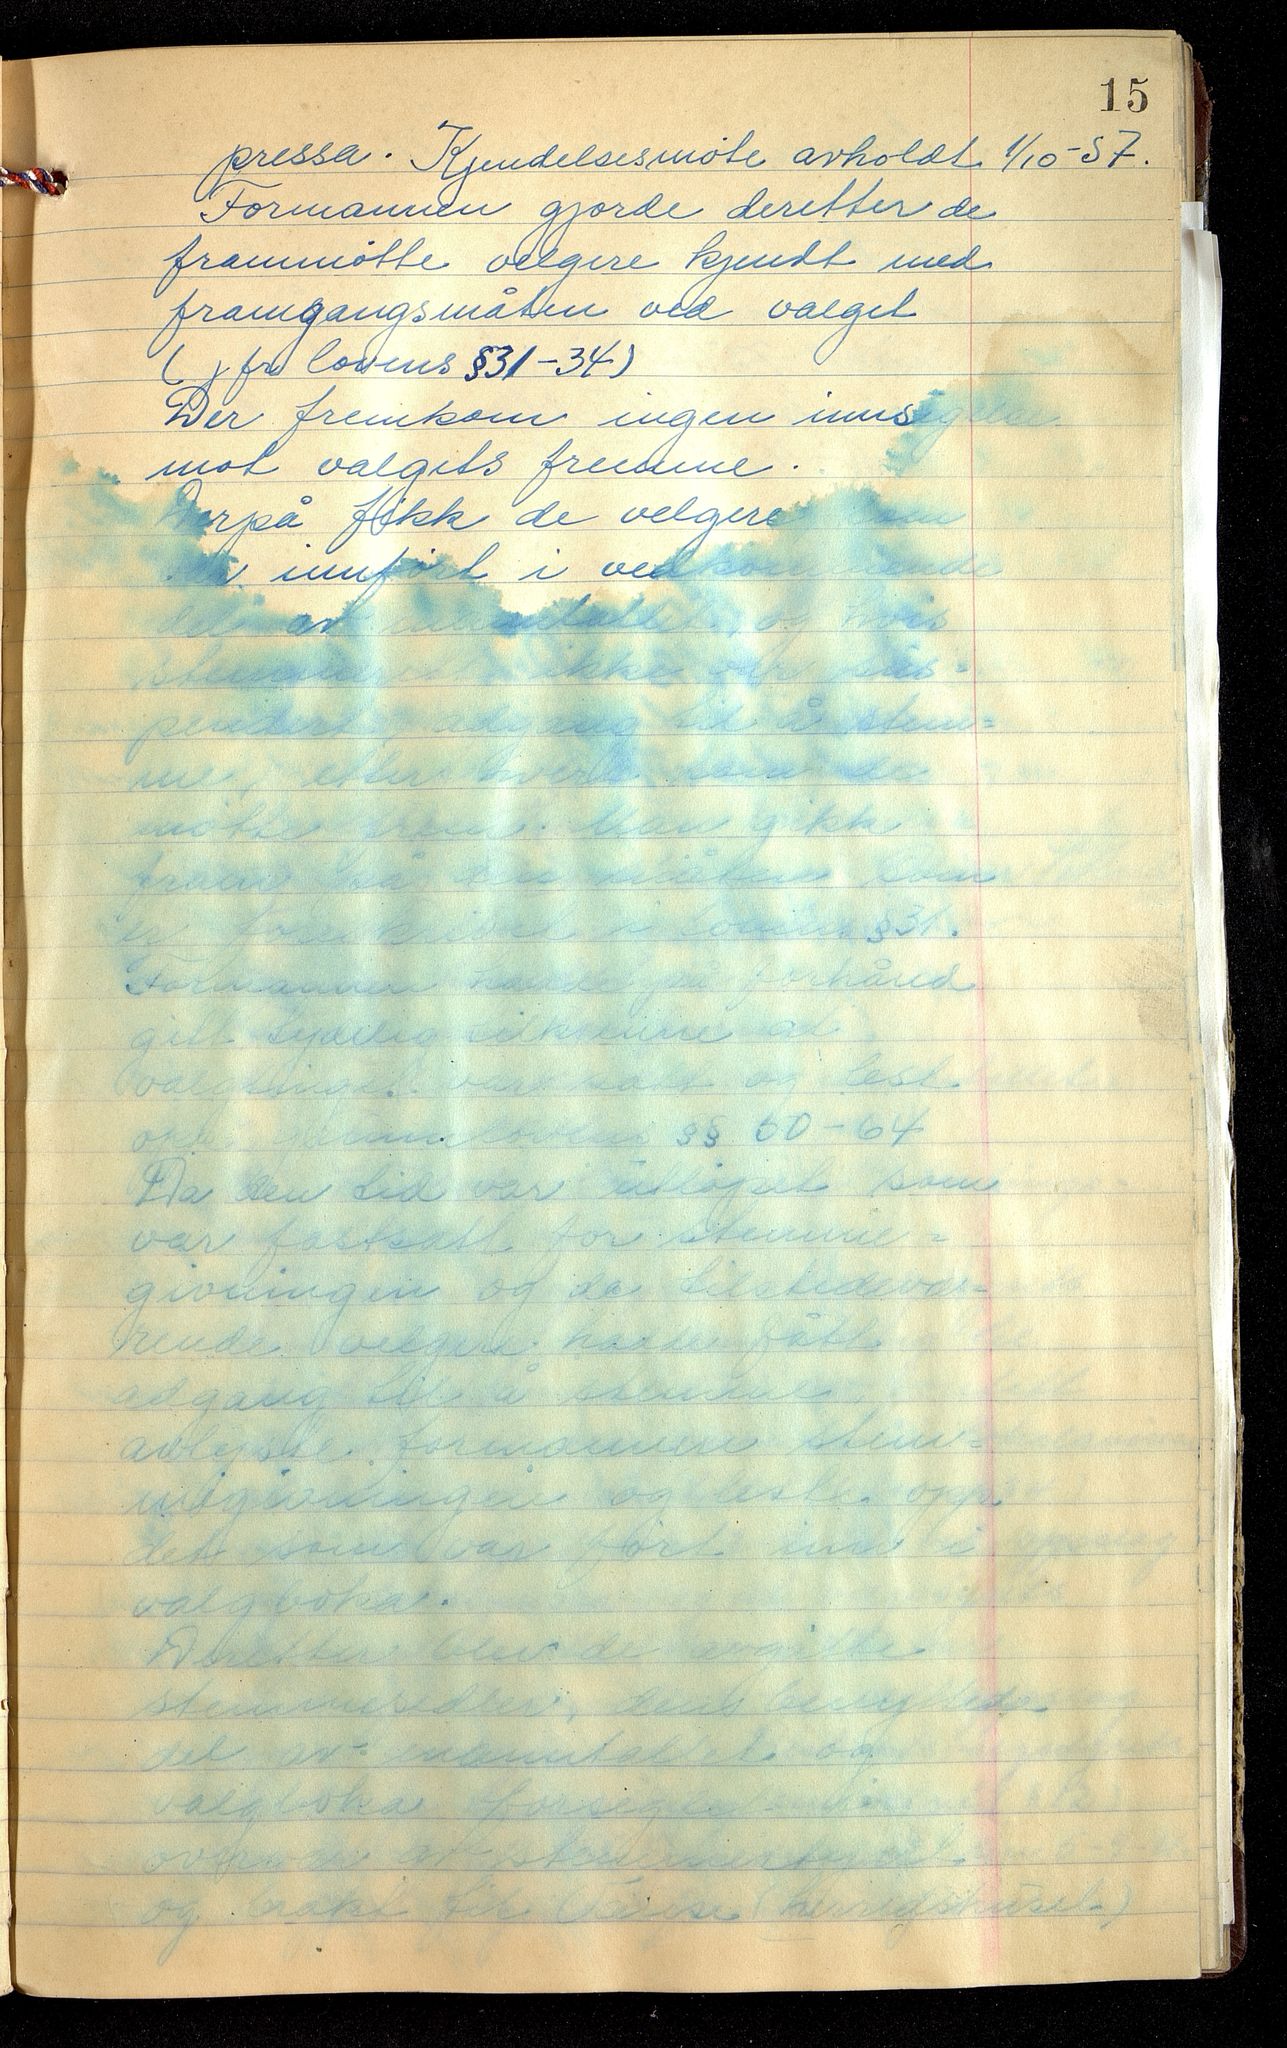 15
pressa. Kjendelsesmöte avholdt 1/10-57.
Formannen gjorde deretter de
frammötte velgere kjendt med
framgangsmåten ved valget
(jfr lovens §31-34)
Der fremkom ingen innsigelse
mot valgets fremme.
Derpå fikk de velgere som
innfört i vedkommende
del av manntallet, og hvis
stemmerett ikke var sus-
pendert, adgang til å stem-
me, etter hvert som de
mötte fram. Man gikk
fram på den måten som
er foreskrevet i lovens §31.
Formannen hadde på forhånd
gitt tydelig tilkjenne at
valgtinget var satt og lest
opp grunnlovens §§ 50-64
Da den tid var utlöpet som
var fastsatt for stemme-
givningen og de tilstedevæ-
rende velgere hadde fått
adgang til å stemme,
avlyste formannen stem-
megivningen og leste opp
det som var fört inn i
valgboka.
Deretter blev de avgitte
stemmesedler, den benyttede
del av manntallet og
valgboka forseglet
overvær av stemmestyret
og brakt til (herredshuset)